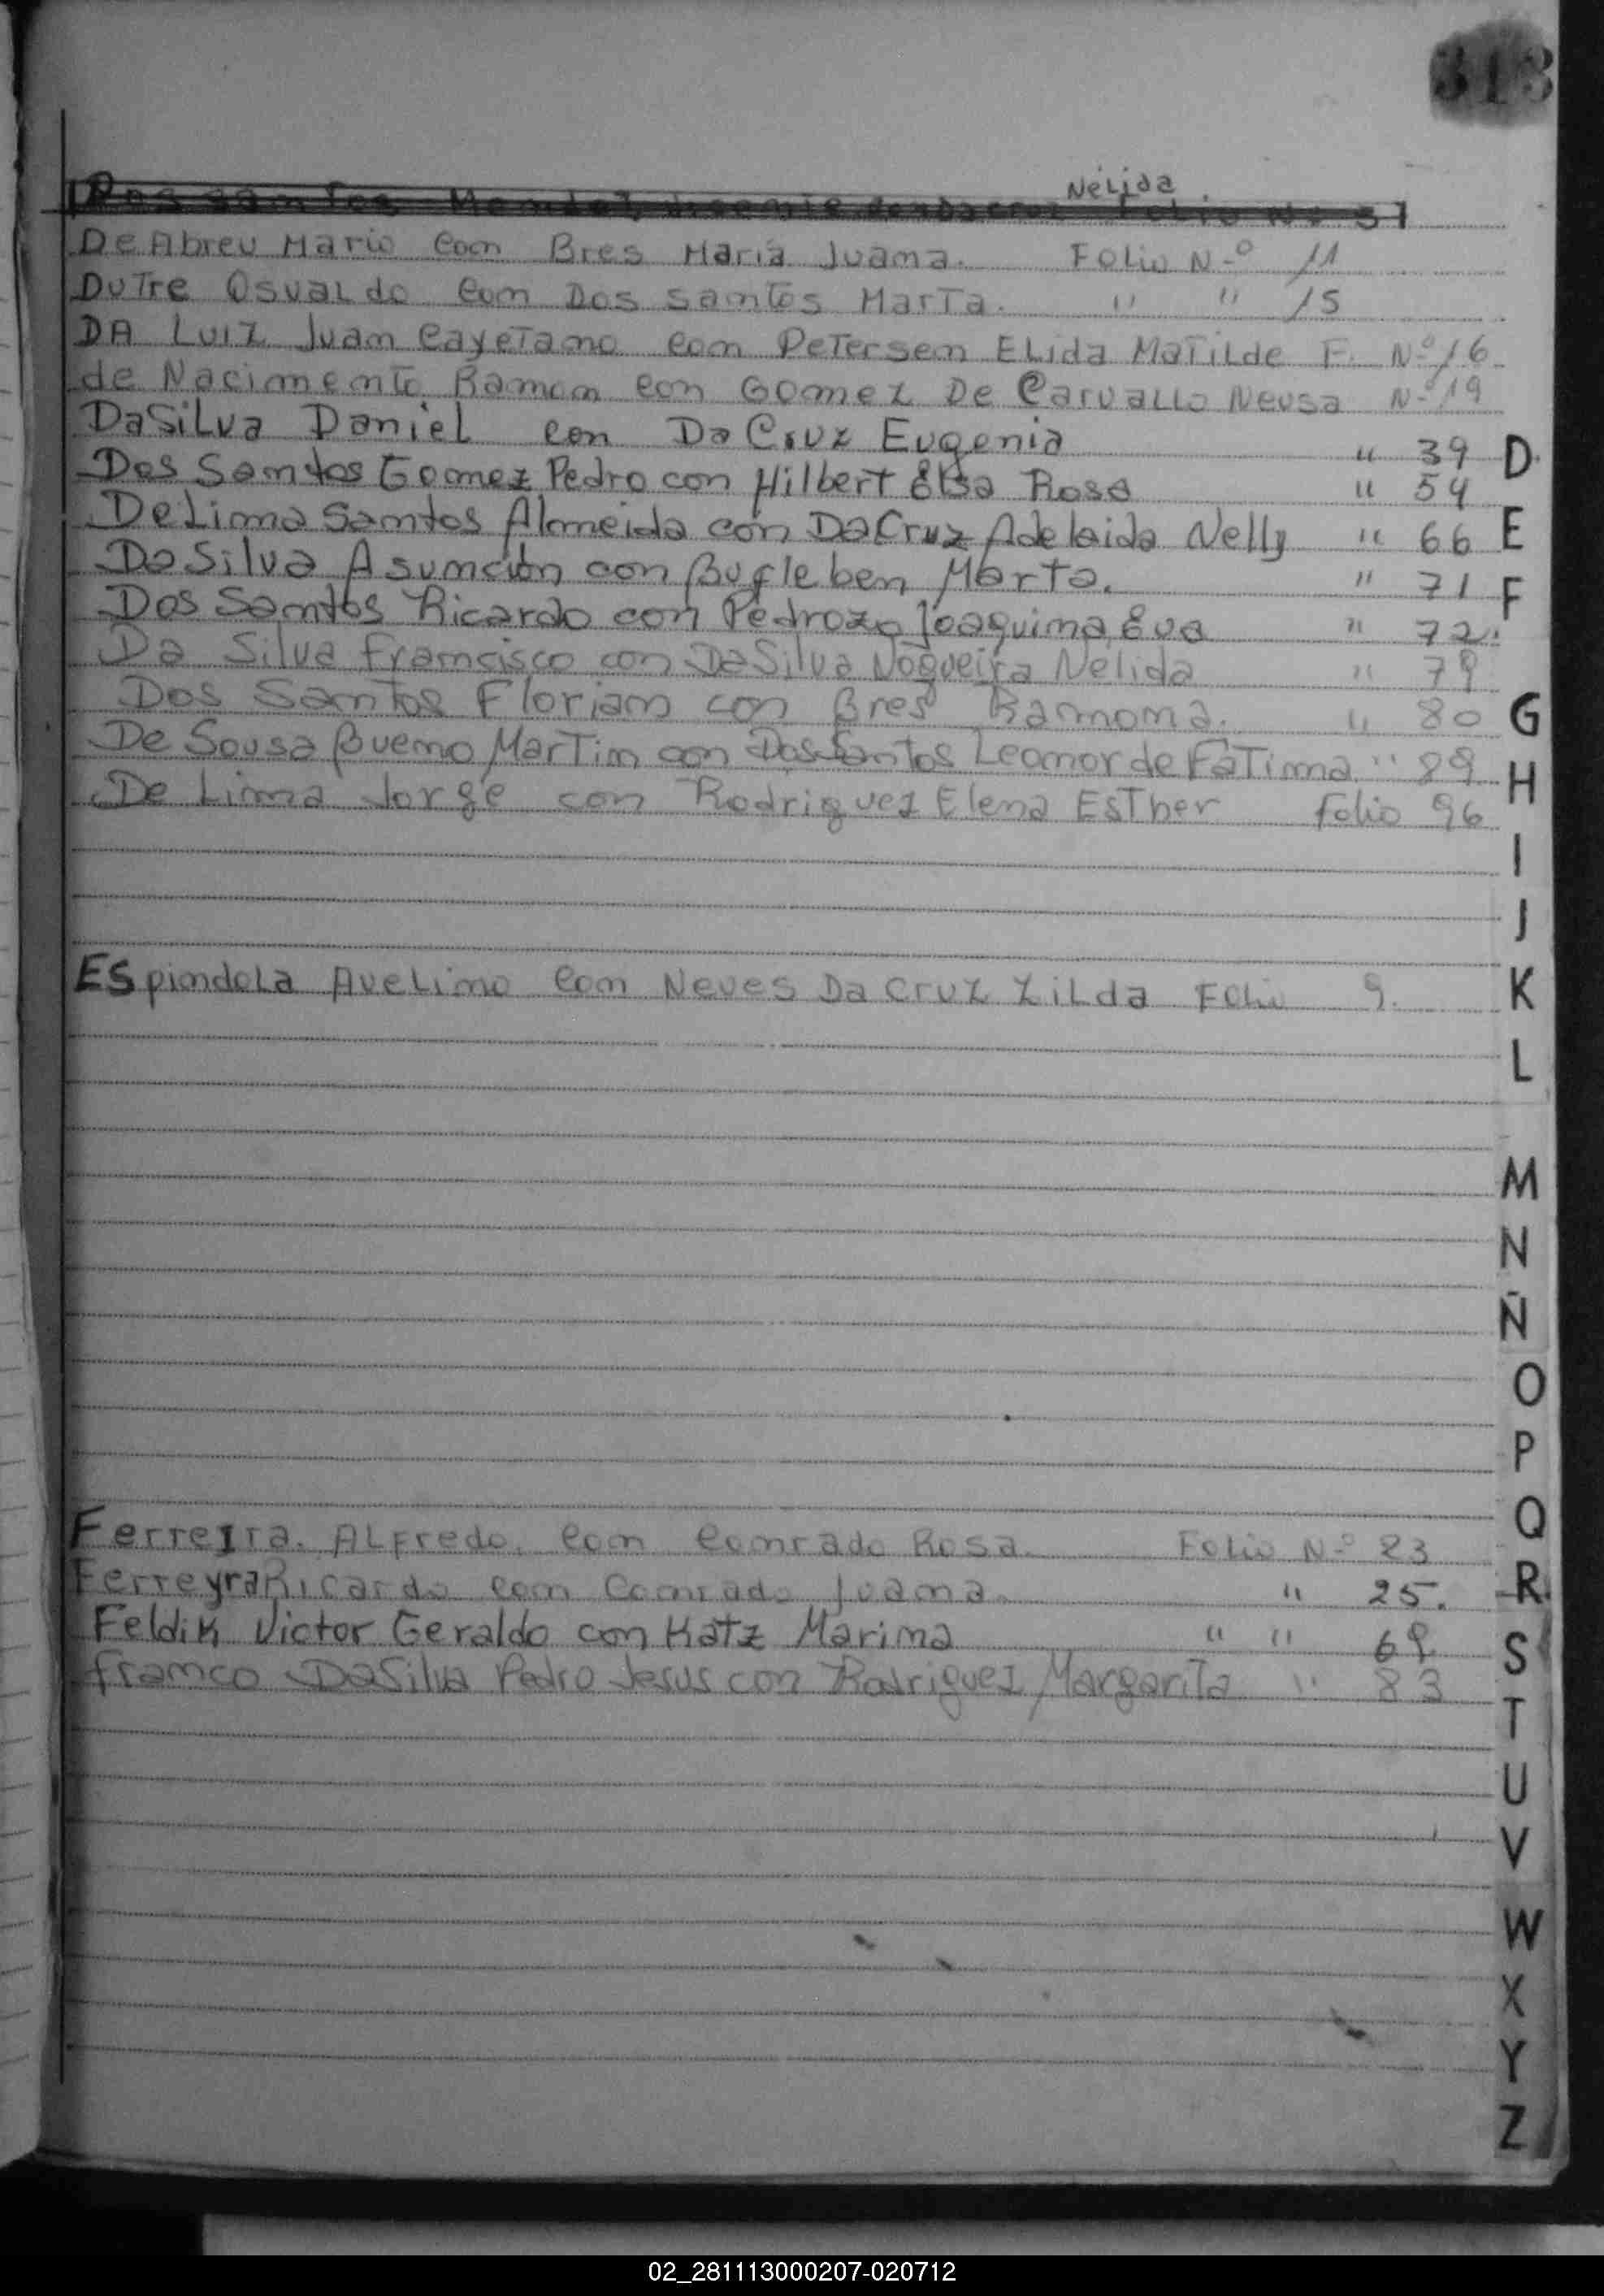 313
Nélida
Dos Santos
De Abreu Mario con Bres Maria Juana. Folio N-º 11
DuTre Osvaldo con Dos Santos Marta. " " 15
DA Luiz Juan Cayetano con Petersen Elida Matilde F. Nº 16
de Nacimento Ramon con Gomez De Carvallo Neusa N-º 19
DaSilva Daniel con Da Cruz Eugenia " 39
Dos Santos Gomez Pedro con Hilbert Elsa Rosa " 54
DeLima Santos Almeida con DaCruz Adelaida Nelly " 66
DaSilva Asunción con Bugleben Marta. " 71
Dos Santos Ricardo con Pedrozo Joaquima Eva " 72.
Da Silva Francisco con DaSilva Nogueira Nelida " 79
Dos Santos Florian con Bres Ramona. " 80
De Sousa Bueno Martin con Dos Santos Leonor de Fatima " 89
De Lima Jorge con Rodriguez Elena Esther folio 96
Espindola Avelino con Neves Da Cruz Zilda Folio 9.
Ferreira. Alfredo. con Conrado Rosa. Folio N-º 23
Ferreyra Ricardo con Conrado Juana. " 25.
Feldik Victor Geraldo con Katz Marina " " 69
Franco DaSilva Pedro Jesus con Rodriguez Margarita " 83
D
E
F
G
H
I
J
K
L
M
N
Ñ
O
P
Q
R
S
T
U
V
W
X
Y
Z
02_281113000207-020712